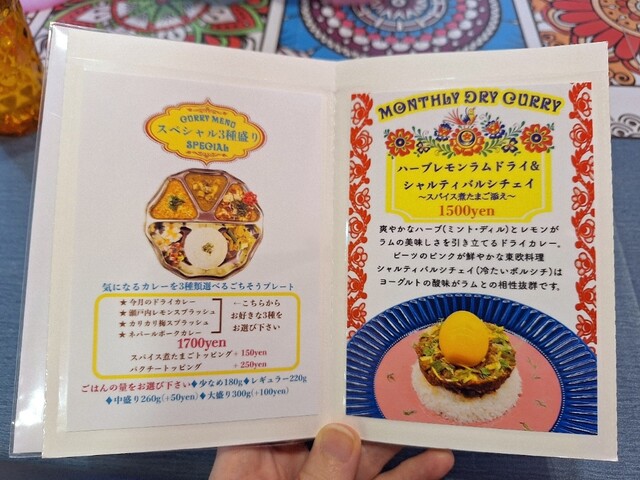 CURRY MENU
スペシャル3種盛り
SPECIAL
気になるカレーを3種類選べるごちそうプレート
★今月のドライカレー
★瀬戸内レモンスプラッシュ
★カリカリ梅スプラッシュ
★ネパールポークカレー
←こちらから
お好きな3種を
お選び下さい
1700yen
スパイス煮たまごトッピング+150yen
パクチートッピング +250yen
ごはんの量をお選び下さい◆少なめ180g◆レギュラー220g
◆中盛り260g(+50yen)◆大盛り300g(+100yen)
MONTHLY DRY CURRY
ハーブレモンラムドライ&
シャルティバルシチェイ
~スパイス煮たまご添え~
1500yen
爽やかなハーブ(ミント・ディル)とレモンが
ラムの美味しさを引き立てるドライカレー。
ビーツのピンクが鮮やかな東欧料理
シャルティバルシチェイ(冷たいボルシチ)は
ヨーグルトの酸味がラムとの相性抜群です。